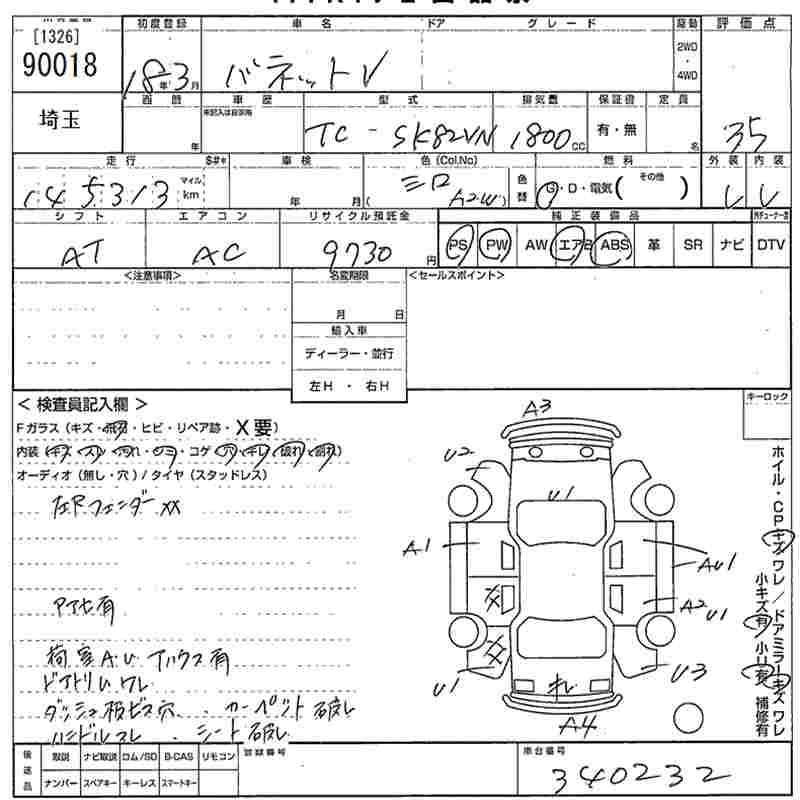 [1326]
90018
初度登録 車名 ドア グレード 駆動 評価点
18年3月 バネットV 2WD・4WD 35
埼玉
車歴 型式 排気量 保証書 定員
未記入は自家用
年 TC-SK82VN 1800cc 有・無 名
走行 車検 色(Col.No) 燃料 外装 内装
145313 マイル km 年 月 シロ (A2W) 色替 G・D・電気( その他 )
シフト エアコン リサイクル預託金 純正装備品
AT AC 9730円 PS PW AW エアB ABS 革 SR ナビ DTV
<注意事項> 名変期限 <セールスポイント>
月 日
輸入車
ディーラー・並行
左H ・ 右H
<検査員記入欄> キーロック
Fガラス(キズ・補修・ヒビ・リペア跡・X要)
内装(キズ・スレ・汚れ・シミ・コゲ・穴・キレ・破れ・割れ)
オーディオ(無し・穴)/タイヤ(スタッドレス)
左Rフェンダーxx
荷室A.U
ドアトリムワレ
ダッシュ板ビス穴、カーペット破レ
ハンドルスレ、シート破レ
A3
U2
U1
A1
AU1
A2
U1
U1
U3
キレ
A4
ホイル・CPキズワレ/ドアミラーキズワレ
小キズ有 小U有 補修有
後送品 取説 ナビ取説 ロム/SD B-CAS リモコン 登録番号 車台番号
ナンバー スペアキー キーレス スマートキー 340232